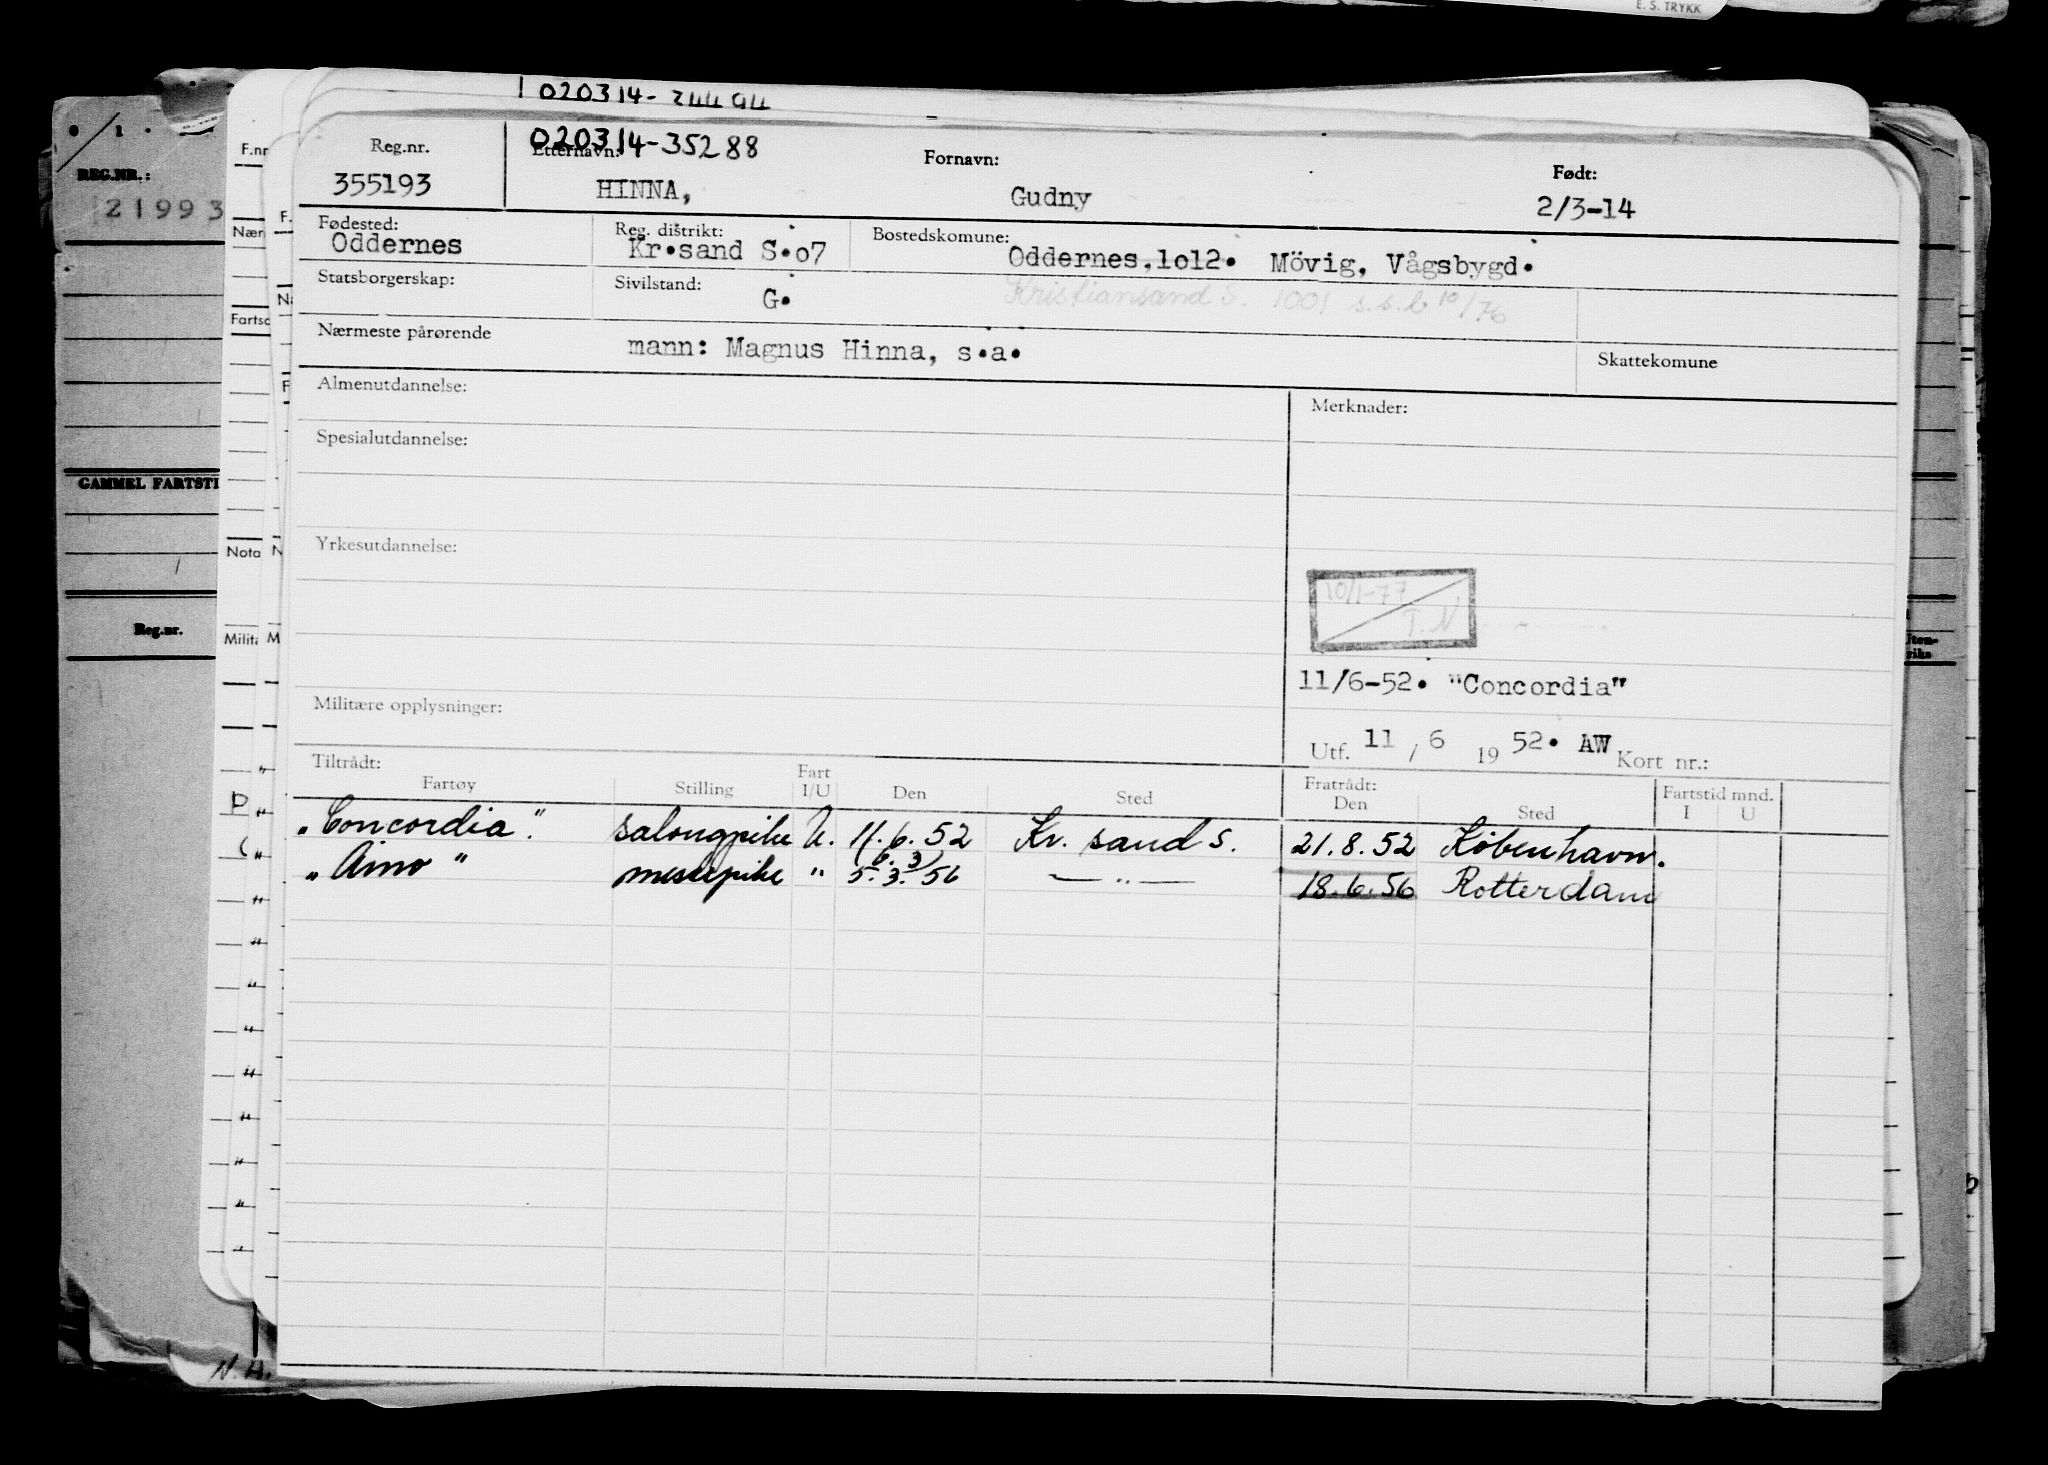 E. S. TRYKK
020314-
REG.NR.:
21993
GAMMEL FARTSTI
Reg.nr.
F.nr
Nær
Fartsc
Nota
Milit
N.A.
020314-35288
Reg.nr. Etternavn: Fornavn: Født:
355193 HINNA, Gudny 2/3-14
Fødested: Reg. distrikt: Bostedskomune:
Oddernes Kr.sand S.o7 Oddernes.1o12. Mövig, Vågsbygd.
Statsborgerskap: Sivilstand: G. Kristiansand S. 1001 s.s.b 10/76
Nærmeste pårørende mann: Magnus Hinna, s.a. Skattekomune
Almenutdannelse: Merknader:
Spesialutdannelse:
Yrkesutdannelse:
10/1-77
T.N
11/6-52. "Concordia"
Militære opplysninger:
Utf. 11 / 6 19 52. AW Kort nr.:
Tiltrådt: Fratrådt: Fartstid mnd.
Fartøy Stilling Fart I/U Den Sted Den Sted I U
„Concordia". salongpike U. 11.6.52 Kr. sand S. 21.8.52 København.
6.3/
„Aino" messepike " 5.3.56 — " — 18.6.56 Rotterdam